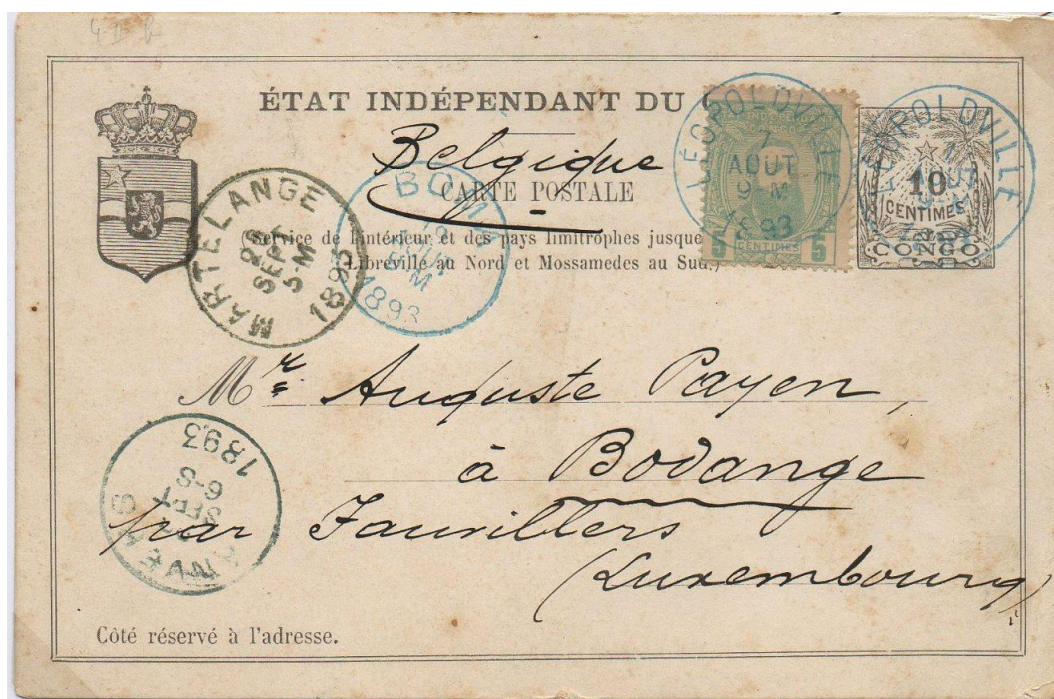 ÉTAT INDÉPENDANT DU C
Belgique
CARTE POSTALE
Service de l'intérieur et des pays limitrophes jusque
Libreville au Nord et Mossamedes au Sud.)
LÉOPOLDVILLE
7
AOUT
9-M
1893
5 CENTIMES 5
LÉOPOLDVILLE
10
CENTIMES
CONGO
MARTELANGE
26
SEPT
5-M
1893
BOMA
1893
Mr Auguste Payen,
à Bodange
par Fauvillers
(Luxembourg)
ANVERS
SEPT
6-S
1893
Côté réservé à l'adresse.